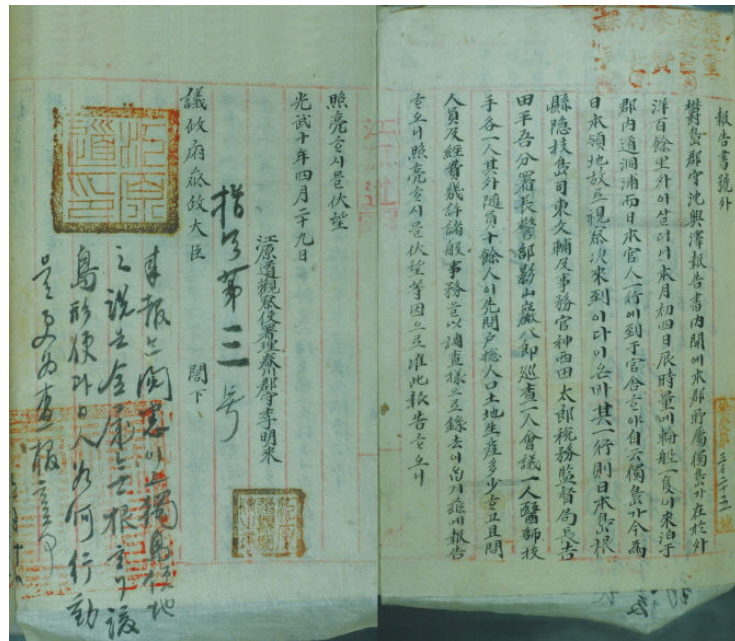 報告書號外
欝島郡守沈興澤報告書內開에本郡所屬獨島가在於外
洋百餘里外이살더니本月初四日辰時量에輪船一隻이來泊于
郡內道洞浦而日本官人一行에到于官舍ᄒᆞ야自云獨島가今爲
日本領地故로視察次來到이다이온바其一行則日本島根
縣隱岐島司東文輔及事務官神西田太郎稅務監督局長吉
田平吾分署長警部影山巖八郎巡査一人會議一人醫師技
手各一人其外隨員十餘人이先問戶摠人口土地生産多少ᄒᆞ고且問
人員及經費幾許諸般事務을以調查樣으로錄去이읍기玆에報告
ᄒᆞ오니照亮ᄒᆞ시믈伏望等因으로准此報告ᄒᆞ오니
照亮ᄒᆞ시믈伏望
光武十年四月二十九日
江原道觀察使署理春川郡守李明來
議政府參政大臣 閣下
指令第三号
來報는閱悉이고獨島領地
之說은全屬無根하나該
島形便과日人如何行動
을更爲查報홀事